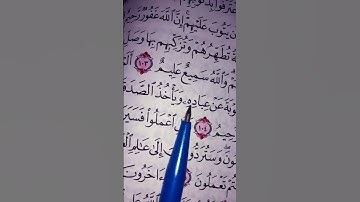 يَتُوبَ عَلَيْهِمْ إِنَّ ٱللَّهَ غَفُورٌ رَّحِيمٌ
تُطَهِّرُهُمْ وَتُزَكِّيهِم بِهَا وَصَلِّ
وَٱللَّهُ سَمِيعٌ عَلِيمٌ ١٠٣
عَنْ عِبَادِهِۦ وَيَأْخُذُ ٱلصَّدَ
١٠٤ ٱعْمَلُوا۟ فَسَيَرَ
وَسَتُرَدُّونَ إِلَىٰ عَٰلِمِ
تَعْمَلُونَ وَءَاخَرُونَ